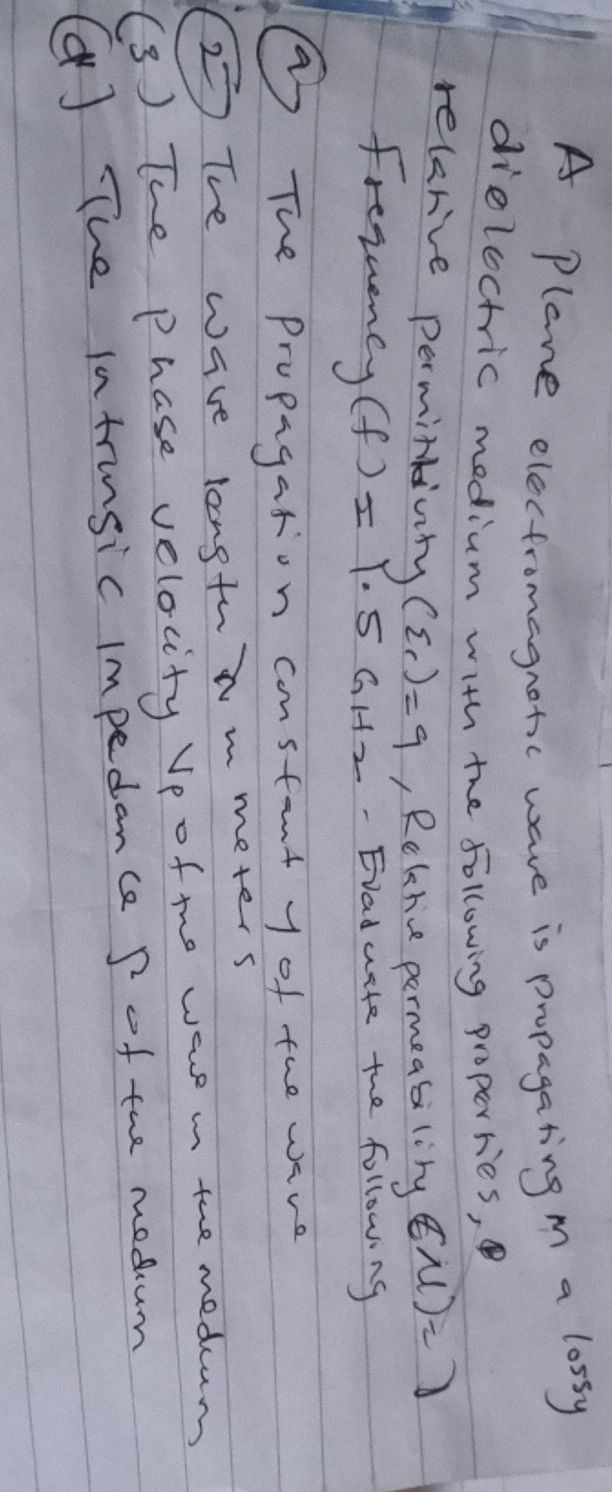 A plane electromagnetic wave is propagating in a lossy
dielectric medium with the following properties,
relative permittivity (εr) = 9, Relative permeability (μ) = 1
frequency (f) = 1.5 GHz - Evaluate the following
1 The propagation constant γ of the wave
2 The wave length λ in meters
(3) The phase velocity Vp of the wave in the medium
(4) The intrinsic impedance of the medium